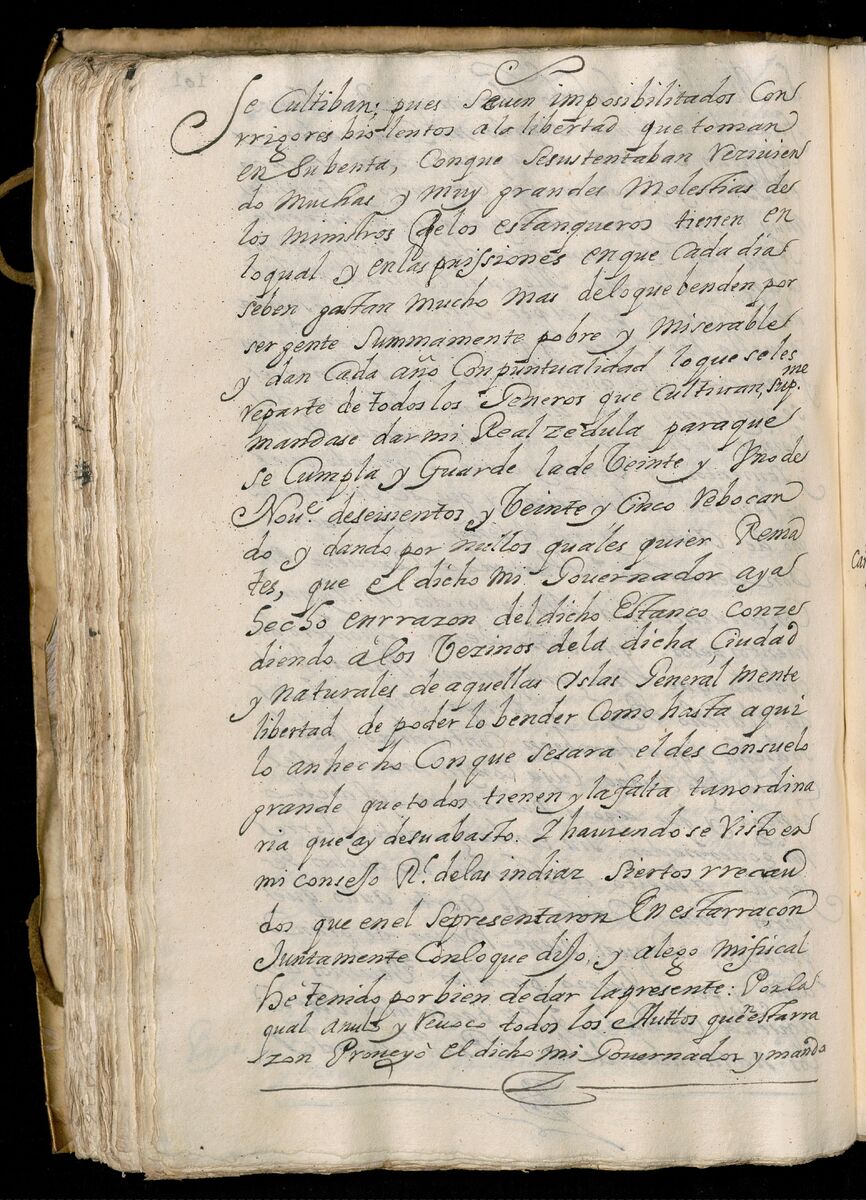 Se Cultiban; pues Seuen imposibilitados Con
rrigores biolentos a la libertad que toman
en Su benta, Conque Sesustentaban Reziuien
do Muchas y muy grandes Molestias de
los ministros delos estanqueros tienen en
loqual y enlas prissiones enque Cada dia
seben gastan mucho mas deloque benden por
ser gente Summamente pobre y Miserable
y dan Cada año Conpuntualidad loque seles
reparte de todos los Generos que Cultiuan, sup.me
mandase dar mi Real zedula paraque
Se Cumpla y Guarde lade Veinte y Vno de
Nou.e deseisientos y Veinte y Cinco Rebocan
do y dando por nullos quales quier Rema
tes, que el dicho Mi Gouernador aya
hecho enrrazon del dicho Estanco Conze
diendo â los Vezinos dela dicha Ciudad
y naturales de aquellas Yslas General mente
libertad de poder lo bender Como hasta aqui
lo an hecho Conque Sesara el des consuelo
grande que todos tienen y la falta tan ordina
ria que ay desuabasto. Y hauiendose Visto en
mi consejo R.l delas indiaz Siertos rrecau
dos que enel Sepresentaron En estarraçon
Juntamente Conloque dijo, y alego mi fiscal
hê tenido por bien de dar la presente: Por la
qual anulo y Reuoco todos los Auttos que en estarra
zon Proueyô el dicho mi Gouernador y mando